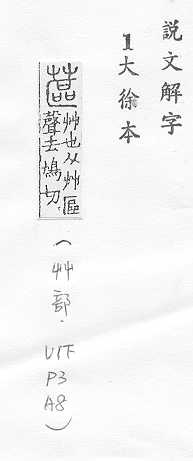 説文解字
1大徐本
蓲 艸也从艸區
聲去鳩切
(艸部.
U1下
P3
A8)